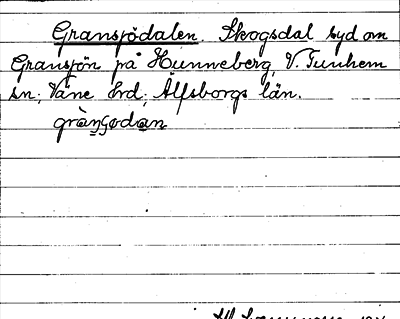 Gransjödalen. Skogsdal syd om
Gransjön på Hunneberg, V. Tunhem
sn; Väne hrd; Älfsborgs län.
grànʃödan